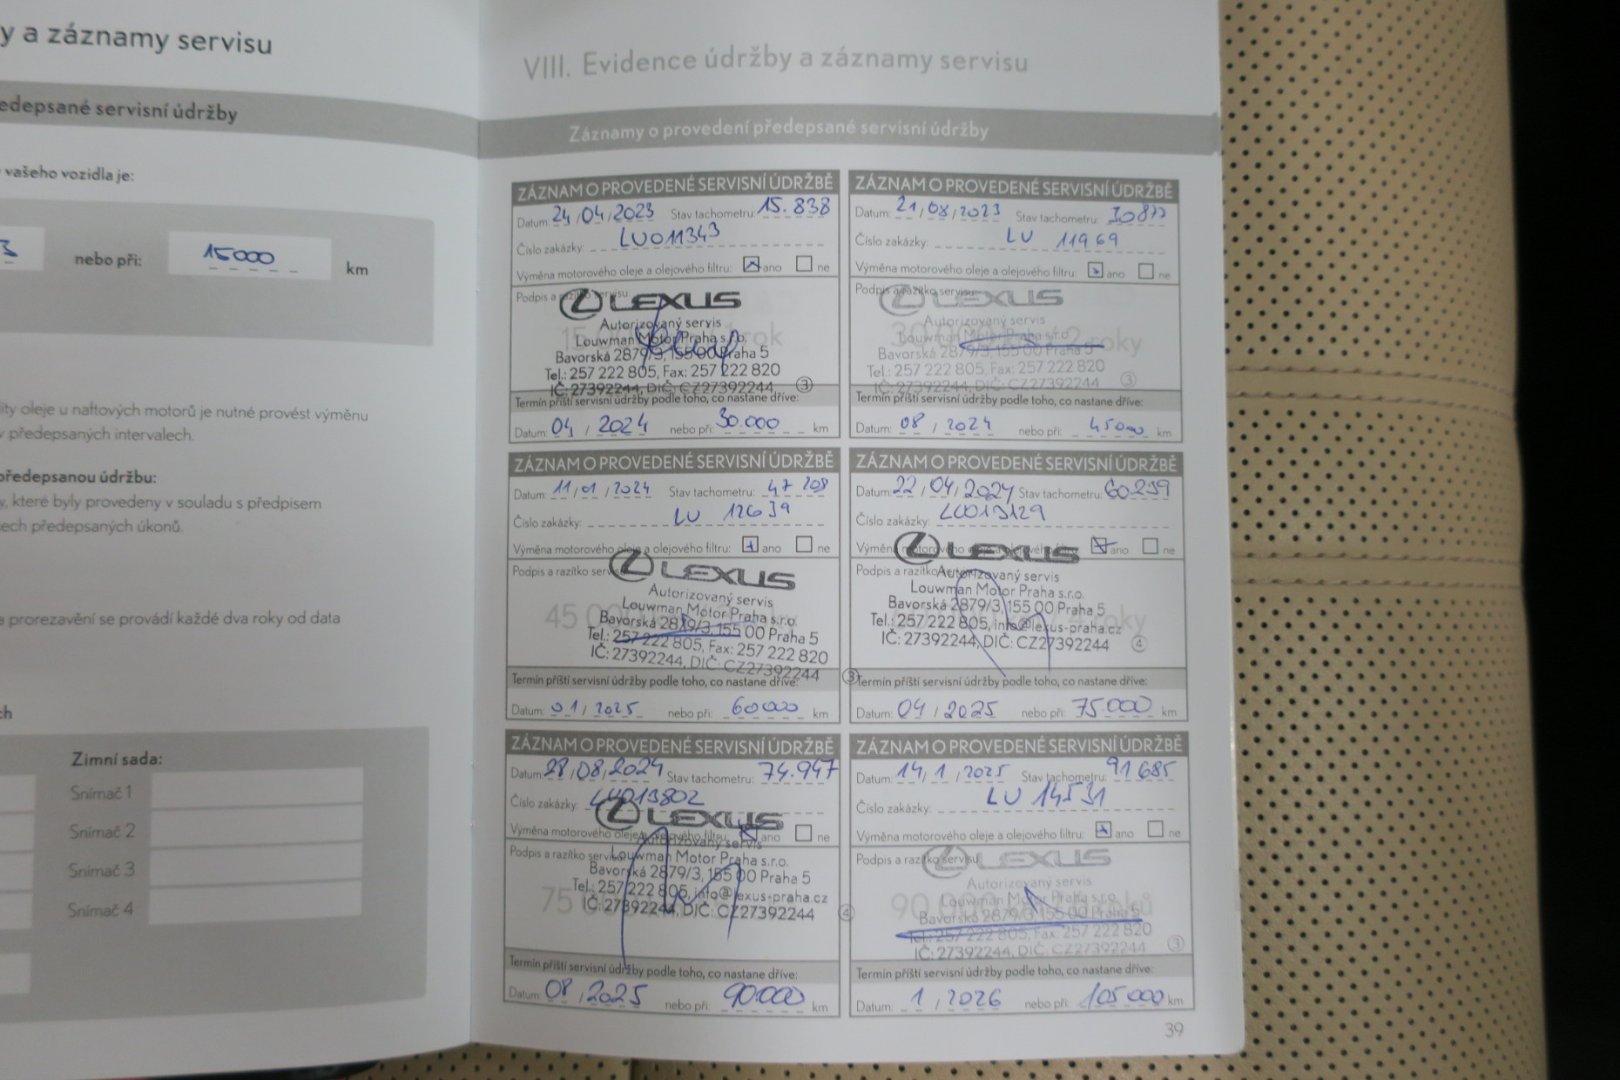 y a záznamy servisu
edepsané servisní údržby
vašeho vozidla je:
3 nebo při: 15000 km
ity oleje u naftových motorů je nutné provést výměnu
v předepsaných intervalech.
předepsanou údržbu:
y, které byly provedeny v souladu s předpisem
ech předepsaných úkonů.
a prorezavění se provádí každé dva roky od data
ch
Zimní sada:
Snímač 1
Snímač 2
Snímač 3
Snímač 4
VIII. Evidence údržby a záznamy servisu
Záznamy o provedení předepsané servisní údržby
ZÁZNAM O PROVEDENÉ SERVISNÍ ÚDRŽBĚ
Datum: 24/04/2023 Stav tachometru: 15.838
Číslo zakázky: LU011343
Výměna motorového oleje a olejového filtru: ano ne
Podpis a razítko servisu
LEXUS
Autorizovaný servis
Louwman Motor Praha s.r.o.
Bavorská 2879/3, 155 00 Praha 5
Tel.: 257 222 805, Fax: 257 222 820
IČ: 27392244, DIČ: CZ27392244 3
Termín příští servisní údržby podle toho, co nastane dříve:
Datum: 04 / 2024 nebo při: 30.000 km
ZÁZNAM O PROVEDENÉ SERVISNÍ ÚDRŽBĚ
Datum: 21/08/2023 Stav tachometru:
Číslo zakázky: LU 11969
Výměna motorového oleje a olejového filtru: ano ne
Podpis a razítko servisu
LEXUS
Autorizovaný servis
Louwman Motor Praha s.r.o.
Bavorská 2879/3, 155 00 Praha 5
Tel.: 257 222 805, Fax: 257 222 820
IČ: 27392244, DIČ: CZ27392244 3
Termín příští servisní údržby podle toho, co nastane dříve:
Datum: 08 / 2024 nebo při: 45000 km
ZÁZNAM O PROVEDENÉ SERVISNÍ ÚDRŽBĚ
Datum: 11/01/2024 Stav tachometru: 47 208
Číslo zakázky: LU 12639
Výměna motorového oleje a olejového filtru: ano ne
Podpis a razítko servisu
LEXUS
Autorizovaný servis
Louwman Motor Praha s.r.o.
Bavorská 2879/3, 155 00 Praha 5
Tel.: 257 222 805, Fax: 257 222 820
IČ: 27392244, DIČ: CZ27392244 3
Termín příští servisní údržby podle toho, co nastane dříve:
Datum: 01 / 2025 nebo při: 60000 km
ZÁZNAM O PROVEDENÉ SERVISNÍ ÚDRŽBĚ
Datum: 22/04/2024 Stav tachometru: 60.239
Číslo zakázky: LU013129
Výměna motorového oleje a olejového filtru: ano ne
Podpis a razítko
LEXUS
Autorizovaný servis
Louwman Motor Praha s.r.o.
Bavorská 2879/3, 155 00 Praha 5
Tel.: 257 222 805, info@lexus-praha.cz
IČ: 27392244, DIČ: CZ27392244 4
Termín příští servisní údržby podle toho, co nastane dříve:
Datum: 04 / 2025 nebo při: 75000 km
ZÁZNAM O PROVEDENÉ SERVISNÍ ÚDRŽBĚ
Datum: 28/08/2024 Stav tachometru: 74.947
Číslo zakázky: LU013802
Výměna motorového oleje a olejového filtru: ano ne
LEXUS
Autorizovaný servis
Podpis a razítko servisu
Louwman Motor Praha s.r.o.
Bavorská 2879/3, 155 00 Praha 5
Tel.: 257 222 805, info@lexus-praha.cz
IČ: 27392244, DIČ: CZ27392244 4
Termín příští servisní údržby podle toho, co nastane dříve:
Datum: 08 / 2025 nebo při: 90.000 km
ZÁZNAM O PROVEDENÉ SERVISNÍ ÚDRŽBĚ
Datum: 14/1/2025 Stav tachometru: 91 685
Číslo zakázky: LU 14531
Výměna motorového oleje a olejového filtru: ano ne
Podpis a razítko servisu
LEXUS
Autorizovaný servis
Louwman Motor Praha s.r.o.
Bavorská 2879/3, 155 00 Praha 5
Tel.: 257 222 805, Fax: 257 222 820
IČ: 27392244, DIČ: CZ27392244 3
Termín příští servisní údržby podle toho, co nastane dříve:
Datum: 1 / 2026 nebo při: 105000 km
39